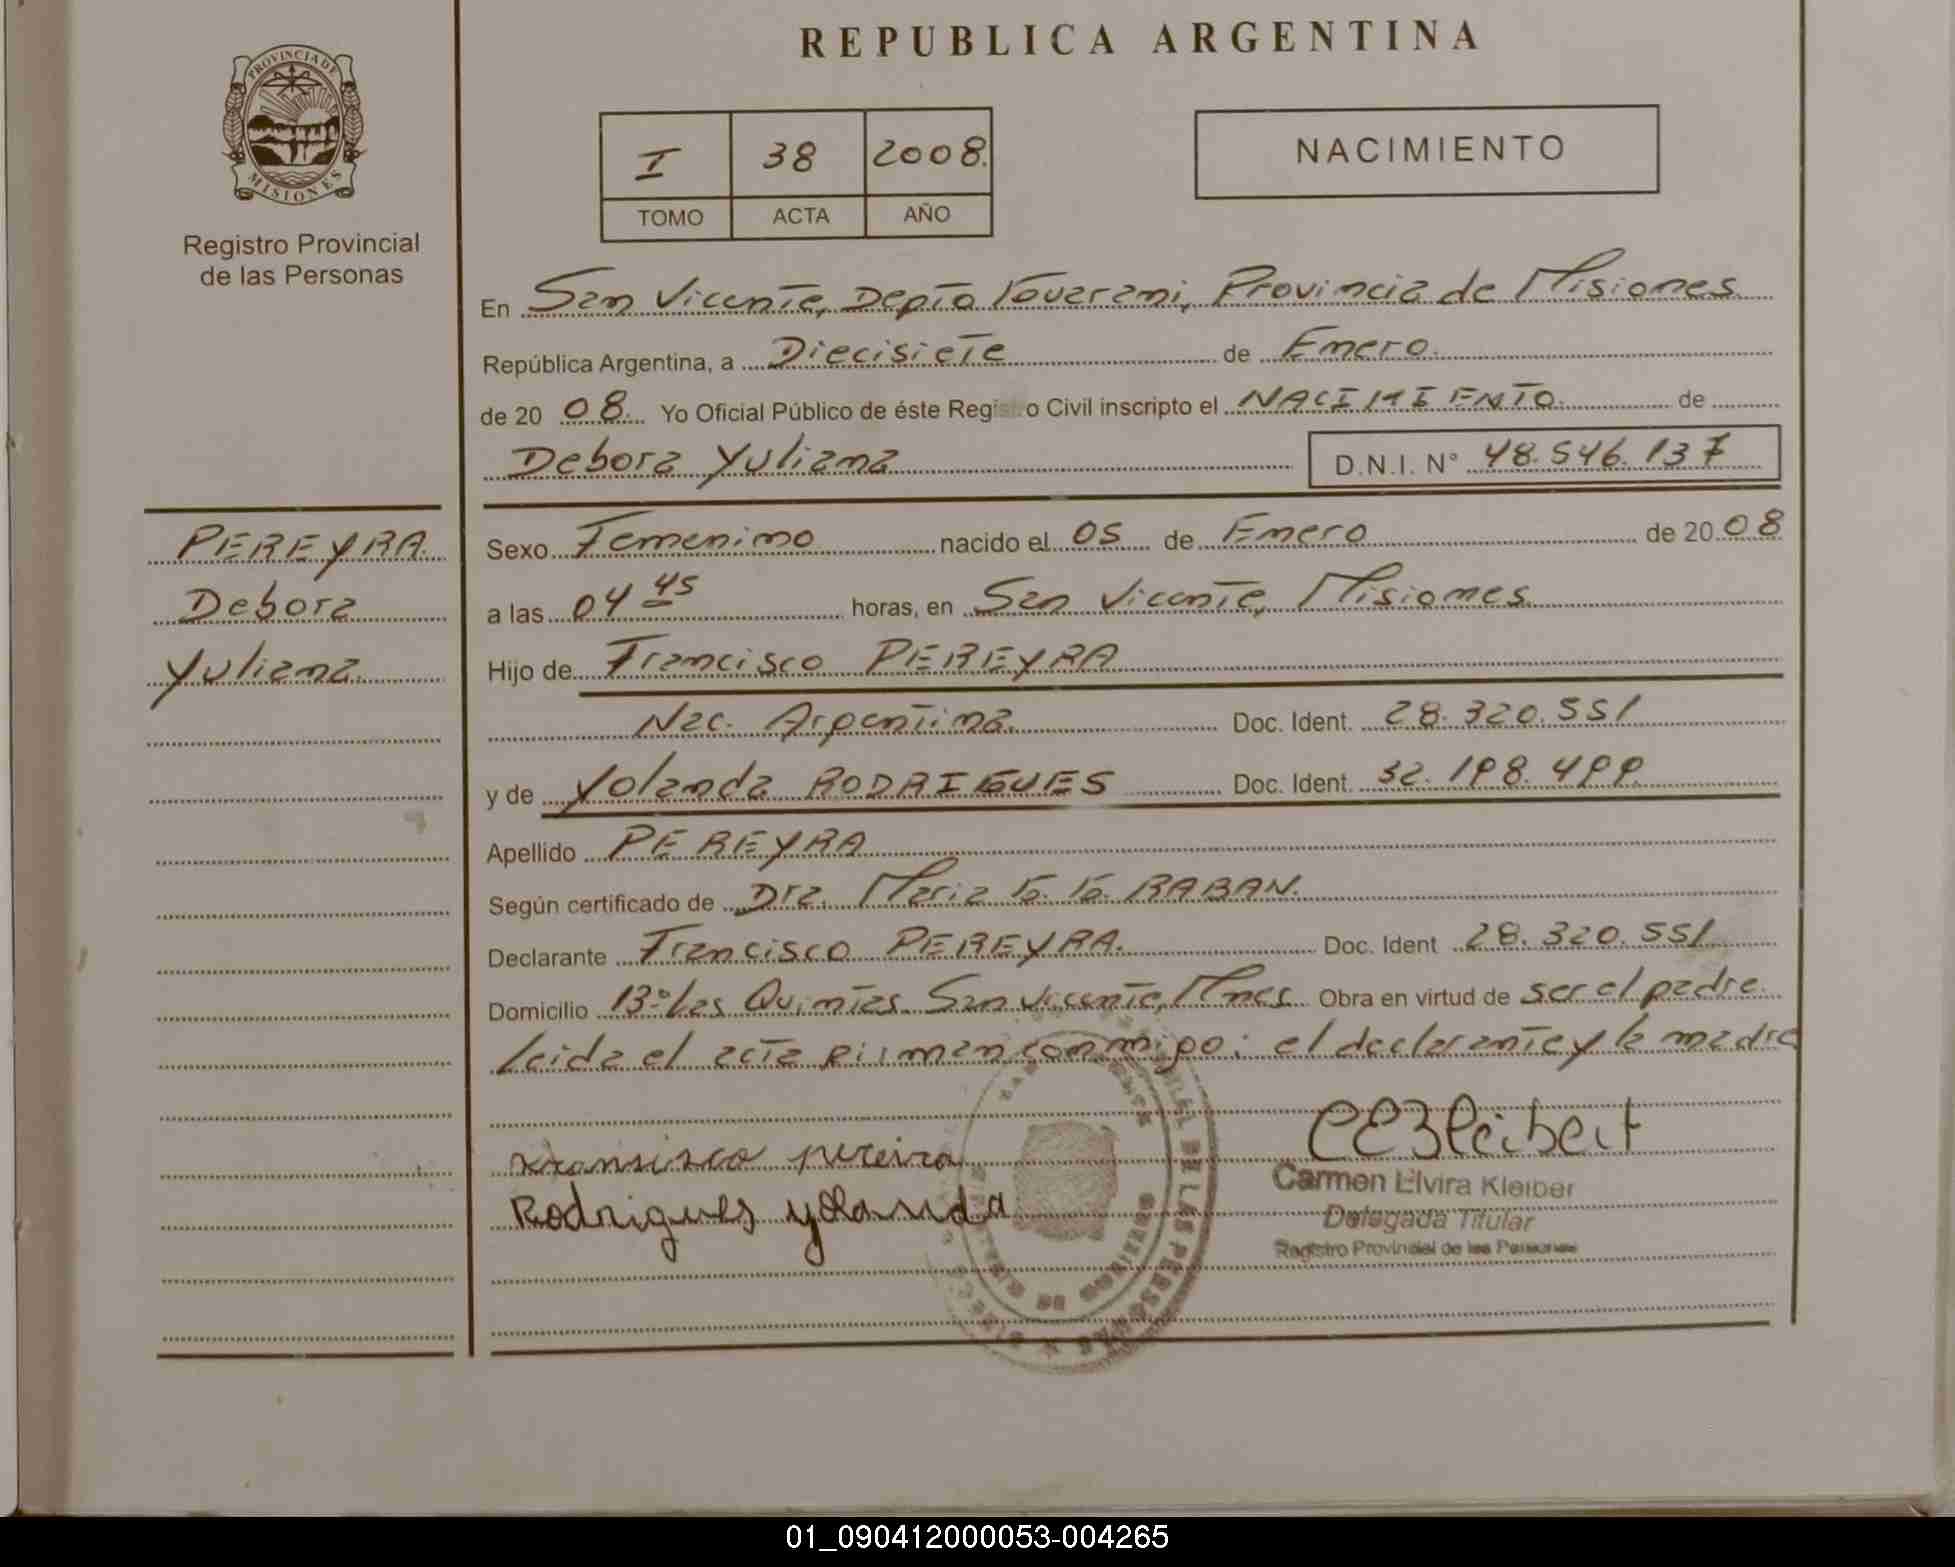 REPUBLICA ARGENTINA
PROVINCIA DE
MISIONES
Registro Provincial
de las Personas
I 38 2008.
TOMO ACTA AÑO
NACIMIENTO
En San Vicente, Depto Guarani, Provincia de Misiones
República Argentina, a Diecisiete de Enero.
de 20 08. Yo Oficial Público de éste Registro Civil inscripto el NACIMIENTO. de
Debora Yuliana D.N.I. N° 48.546.137
PEREYRA
Debora
Yuliana
Sexo Femenino nacido el 05 de Enero de 20 08
a las 04 45 horas, en San Vicente, Misiones
Hijo de Francisco PEREYRA
Nac. Argentina. Doc. Ident. 28.320.551
y de Yolanda RODRIGUES Doc. Ident. 32.198.499
Apellido PEREYRA
Según certificado de Dra. Maria G. G. RABAN.
Declarante Francisco PEREYRA. Doc. Ident 28.320.551
Domicilio B° Las Quintas San Vicente, Mnes Obra en virtud de ser el padre
leida el acta firman conmigo: el declarante y la madre
Fransisco pereira
Rodrigues yolanda
Carmen Elvira Kleiber
Delegada Titular
Registro Provincial de las Personas
DE LAS PERSONAS
01_090412000053-004265